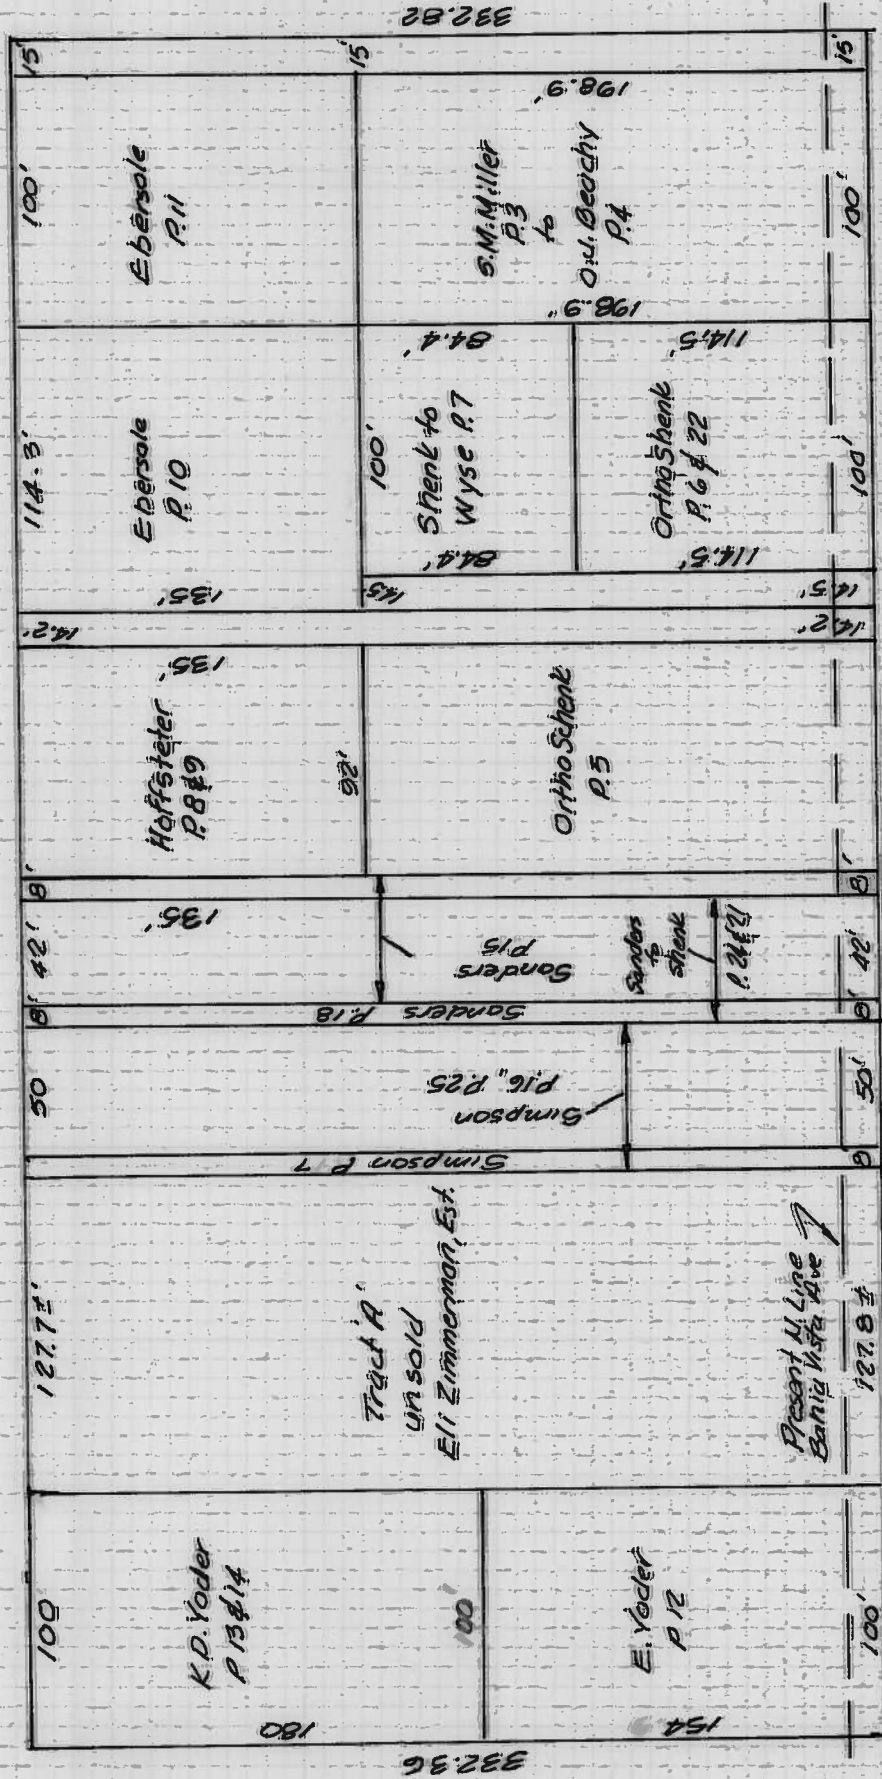 332.82
15'
15'
15'
100'
Ebersole
P.11
198.9'
S.M.Miller
P.3
to
O.J. Beachy
P.4
198.9'
100'
114.3'
Ebersole
P.10
135'
100'
84.4'
Shenk to
Wyse P.7
84.4'
114.5'
Ortho Shenk
P.6 & 22
114.5'
100'
14.5'
14.5'
14.2'
14.2'
135'
Hoffsteter
P.8&9
92'
Ortho Schenk
P.5
8'
8'
42'
135'
Sanders
P15
Sanders
to
Shenk
42'
8'
Sanders P.18
8'
50
Simpson
P.16, P.25
50'
Simpson P 7
8
127.7±'
Tract 'A'
unsold
Eli Zimmerman, Est.
Present N. Line
Bahia Vista Ave
127.8±
100
K.D. Yoder
P 13&14
180
100'
E. Yoder
P 12
154
100'
332.36